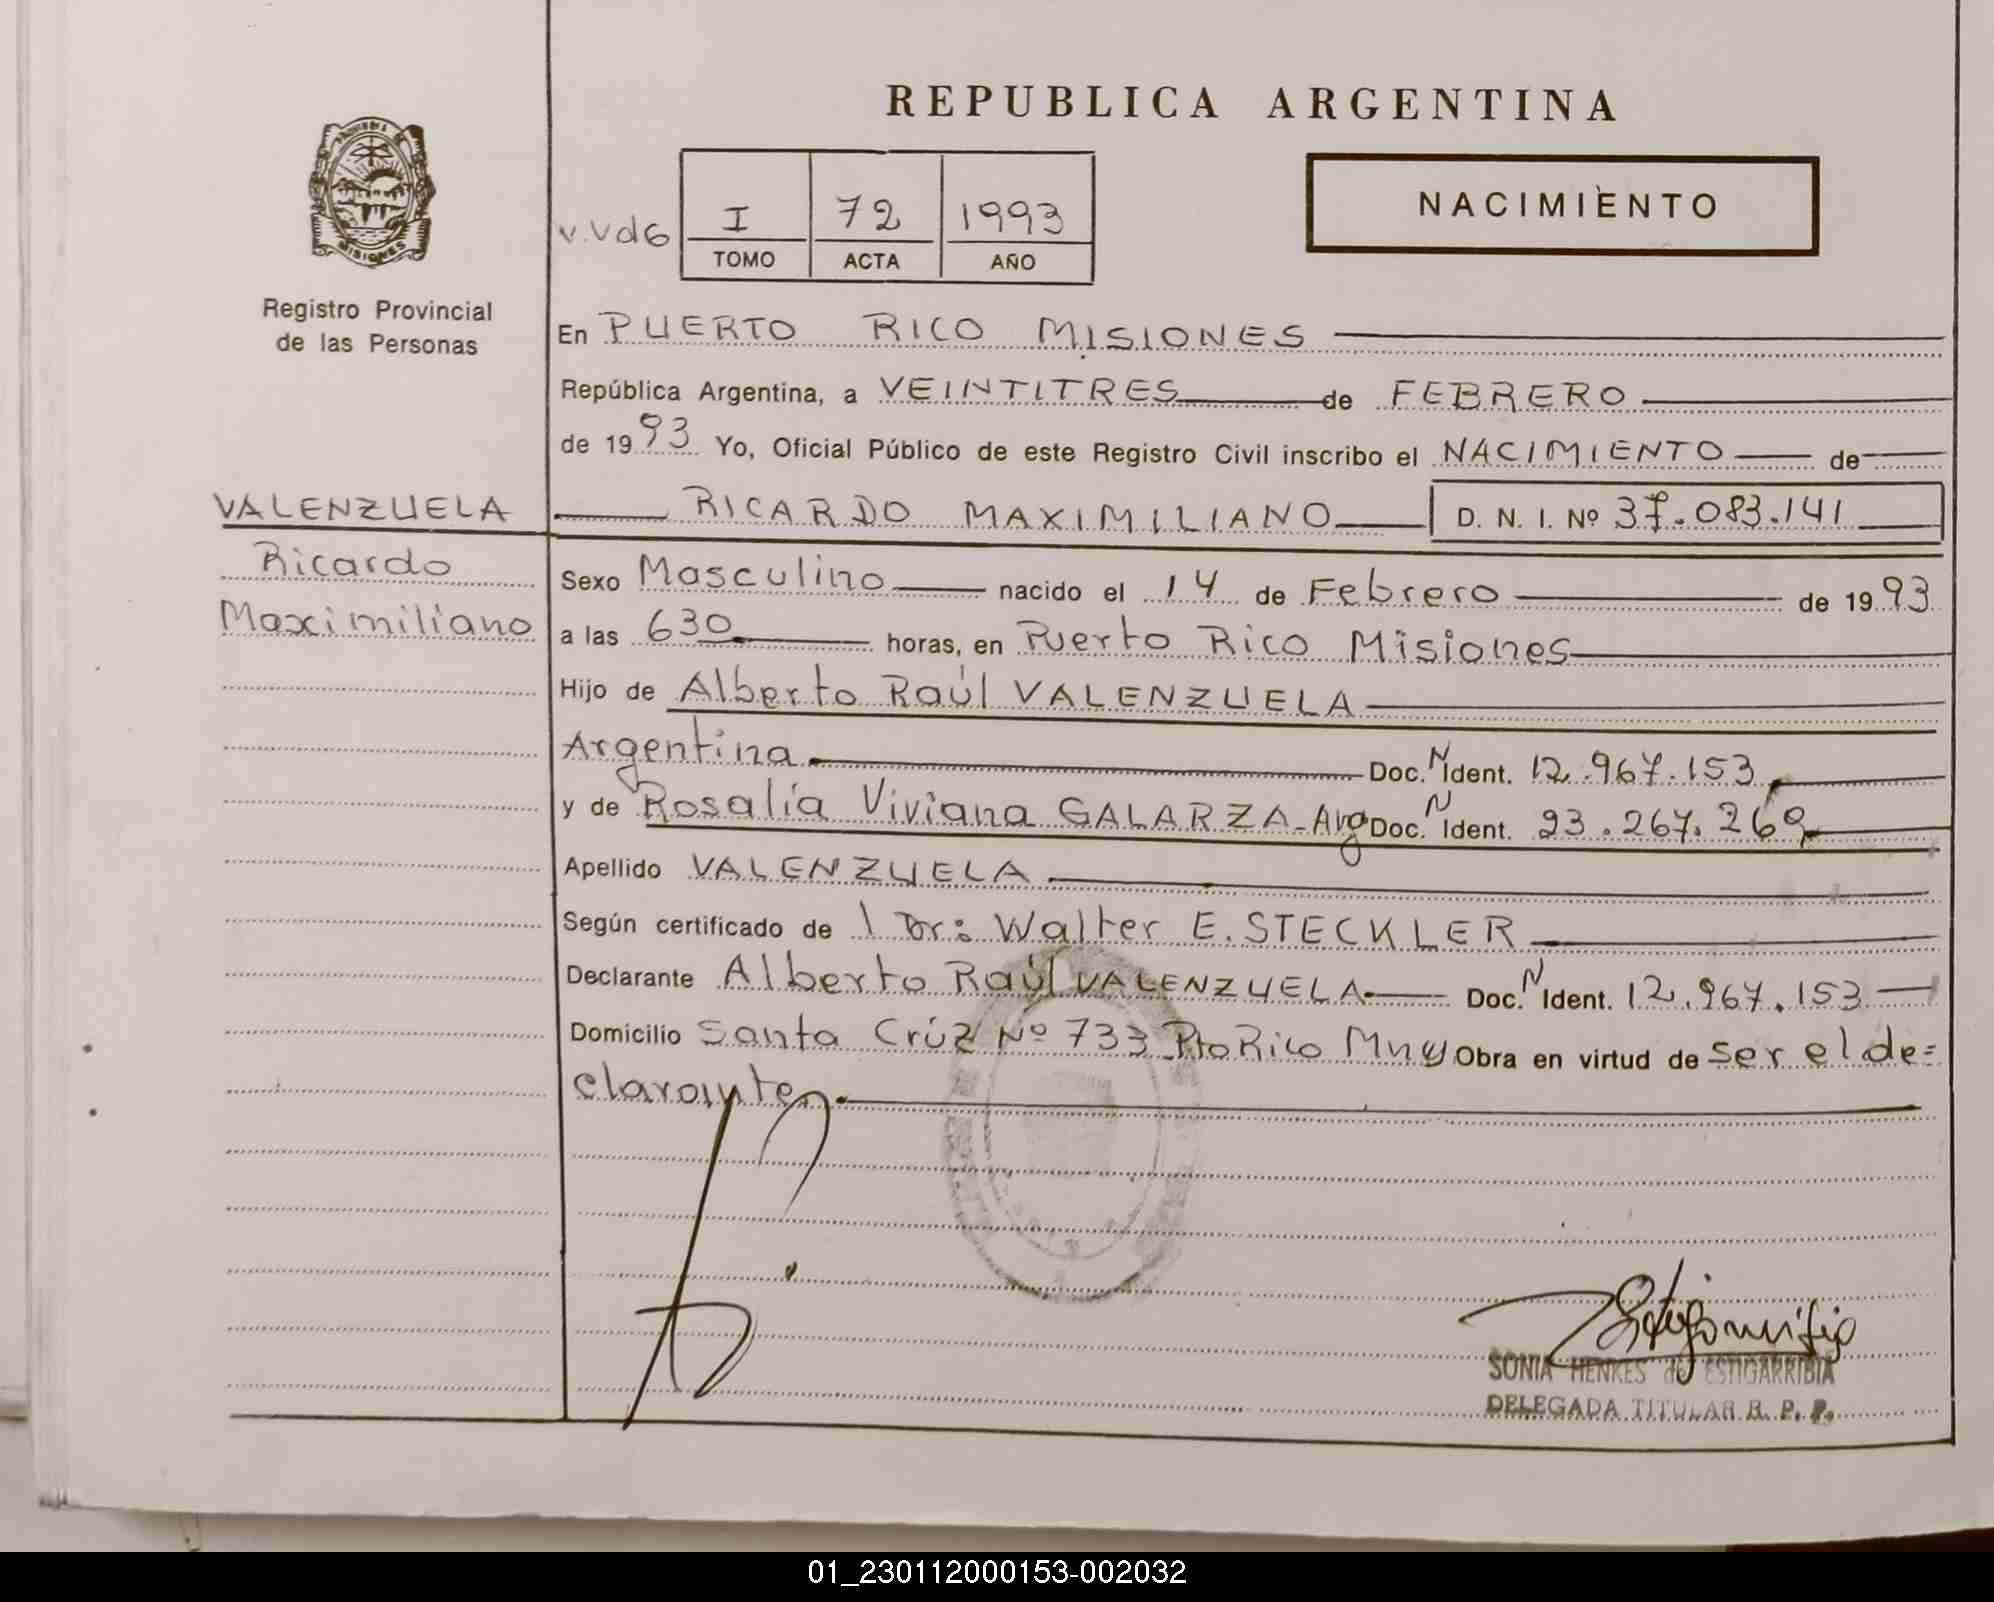 REPUBLICA ARGENTINA
NACIMIENTO
I 72 1993
TOMO ACTA AÑO
MISIONES
Registro Provincial
de las Personas
En PUERTO RICO MISIONES
República Argentina, a VEINTITRES de FEBRERO
de 1993 Yo, Oficial Público de este Registro Civil inscribo el NACIMIENTO de
VALENZUELA
RICARDO MAXIMILIANO D. N. I. Nº 37.083.141
Ricardo
Maximiliano
Sexo Masculino nacido el 14 de Febrero de 1993
a las 630 horas, en Puerto Rico Misiones
Hijo de Alberto Raúl VALENZUELA
Argentina Doc. N Ident. 12.967.153
y de Rosalía Viviana GALARZA-Arg Doc. N Ident. 23.267.269
Apellido VALENZUELA
Según certificado de l Dr: Walter E. STECKLER
Declarante Alberto Raúl VALENZUELA Doc. N Ident. 12.967.153
Domicilio Santa Crúz Nº 733 Pto Rico Mnes Obra en virtud de ser el de=
clarante
SONIA HENKES de ESTIGARRIBIA
DELEGADA TITULAR R. P. P.
01_230112000153-002032